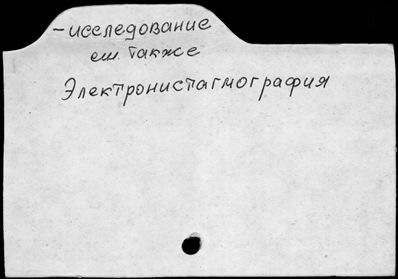 -исследование
см. также
Электронистагмография